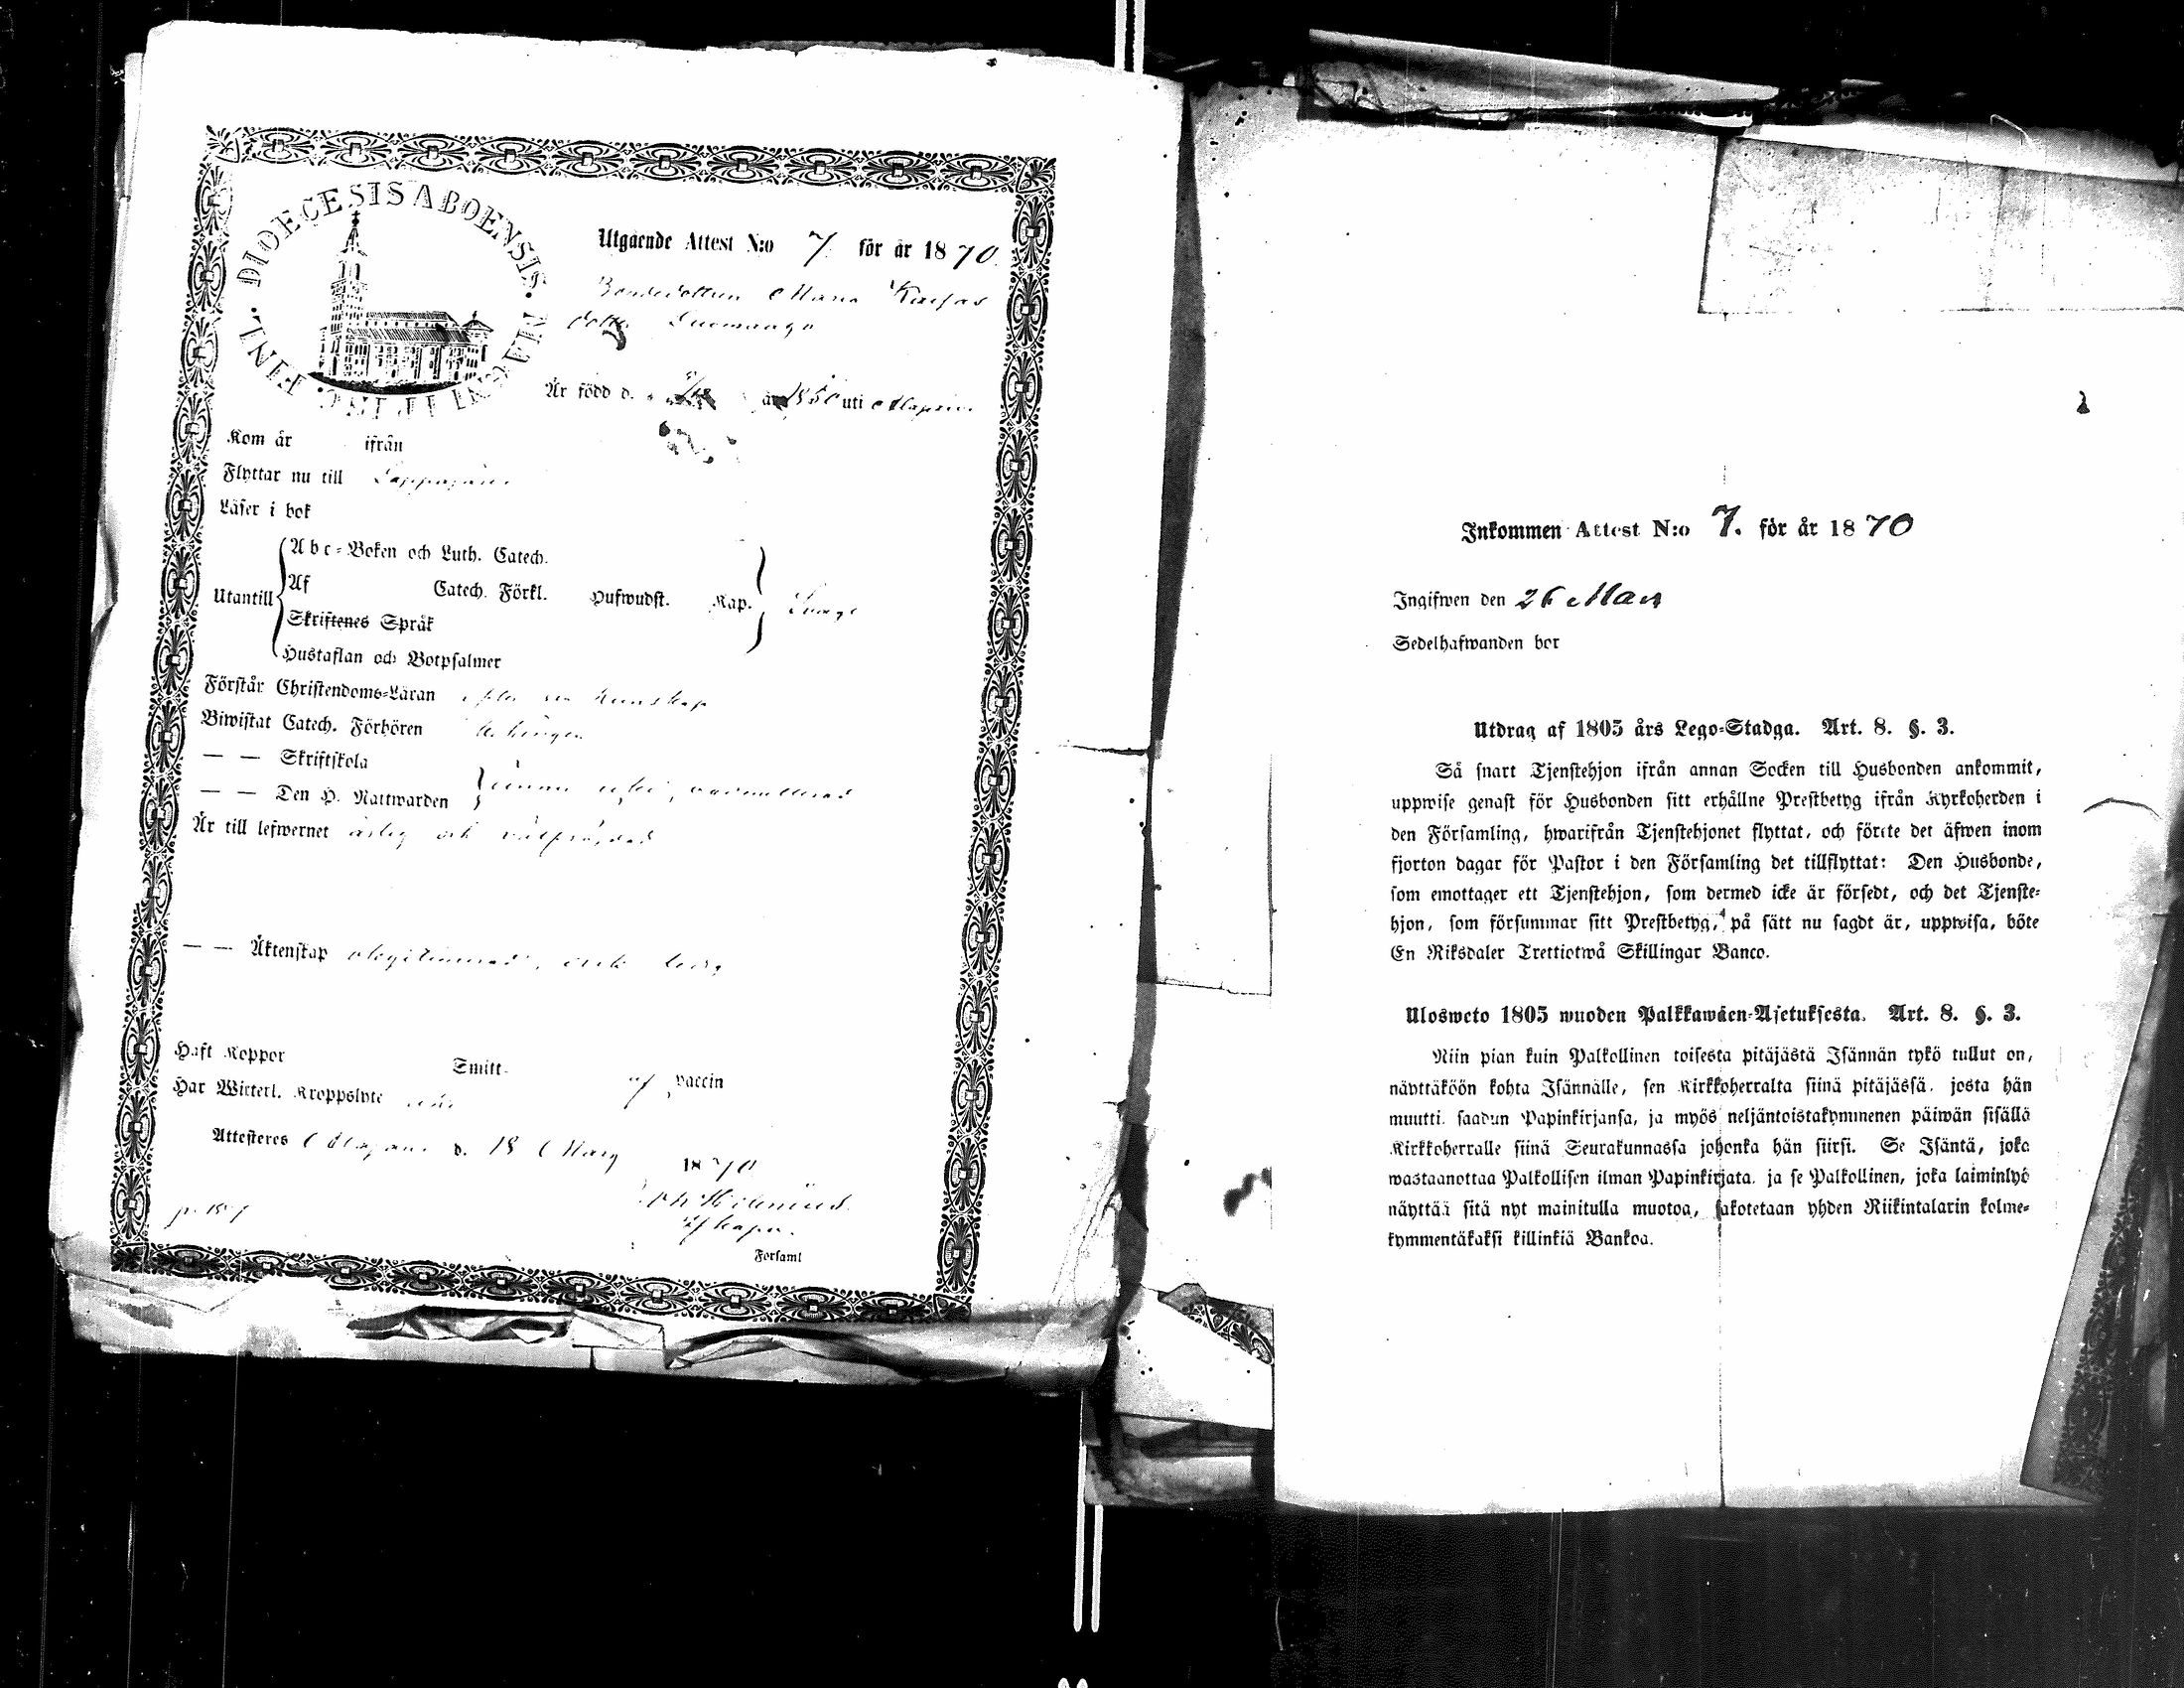 DIOECESIS ABOENSIS
MAGNI
FINL.
Utgående Attest N:o 7. för år 1870.
Bondedottren Maria Kaisas
dotter
Är född d. år 1850 uti Alajärvi
Kom år ifrån
Flyttar nu till Lappajärvi
Läser i bok
Abc-Boken och Luth. Catech.
Utantill Af Catech. Förkl. Hufwudst. Kap. Svagt
Skriftenes Språk
Hustaflan och Botpsalmer
Förstår Christendoms-Läran efter sin kunskap
Biwistat Catech. Förhören
— — Skriftskola
— — Den H. Nattwarden
Är till lefwernet ärlig och välfräjdad
— — Äktenskap olegitimerad, och ledig
Haft Koppor Smitt- af vaccin
Har Witterl. Kroppslyte
Attesteres Alajärvi d. 18 Mars 1870
Kapn.
Forsaml
Inkommen Attest N:o 7. för år 1870
Ingifwen den 26 Mars
Sedelhafwanden bor
Utdrag af 1805 års Lego-Stadga. Art. 8. §. 3.
Så snart Tjenstehjon ifrån annan Socken till Husbonden ankommit,
uppwise genast för Husbonden sitt erhållne Prestbetyg ifrån Kyrkoherden i
den Församling, hwarifrån Tjenstehjonet flyttat, och förete det äfwen inom
fjorton dagar för Pastor i den Församling det tillflyttat: Den Husbonde,
som emottager ett Tjenstehjon, som dermed icke är försedt, och det Tjenste-
hjon, som försummar sitt Prestbetyg, på sätt nu sagdt är, uppwisa, böte
En Riksdaler Trettiotwå Skillingar Banco.
Ulosweto 1805 wuoden Palkkawäen-Asetuksesta. Art. 8. §. 3.
Niin pian kuin Palkollinen toisesta pitäjästä Isännän tykö tullut on,
näyttäköön kohta Isännälle, sen Kirkkoherralta siinä pitäjässä, josta hän
muutti, saadun Papinkirjansa, ja myös neljäntoistakymmenen päiwän sisällä
Kirkkoherralle siinä Seurakunnassa johonka hän siirsi. Se Isäntä, joka
wastaanottaa Palkollisen ilman Papinkirjata, ja se Palkollinen, joka laiminlyö
näyttää sitä nyt mainitulla muotoa, sakotetaan yhden Riikintalarin kolme-
kymmentäkaksi killinkiä Bankoa.